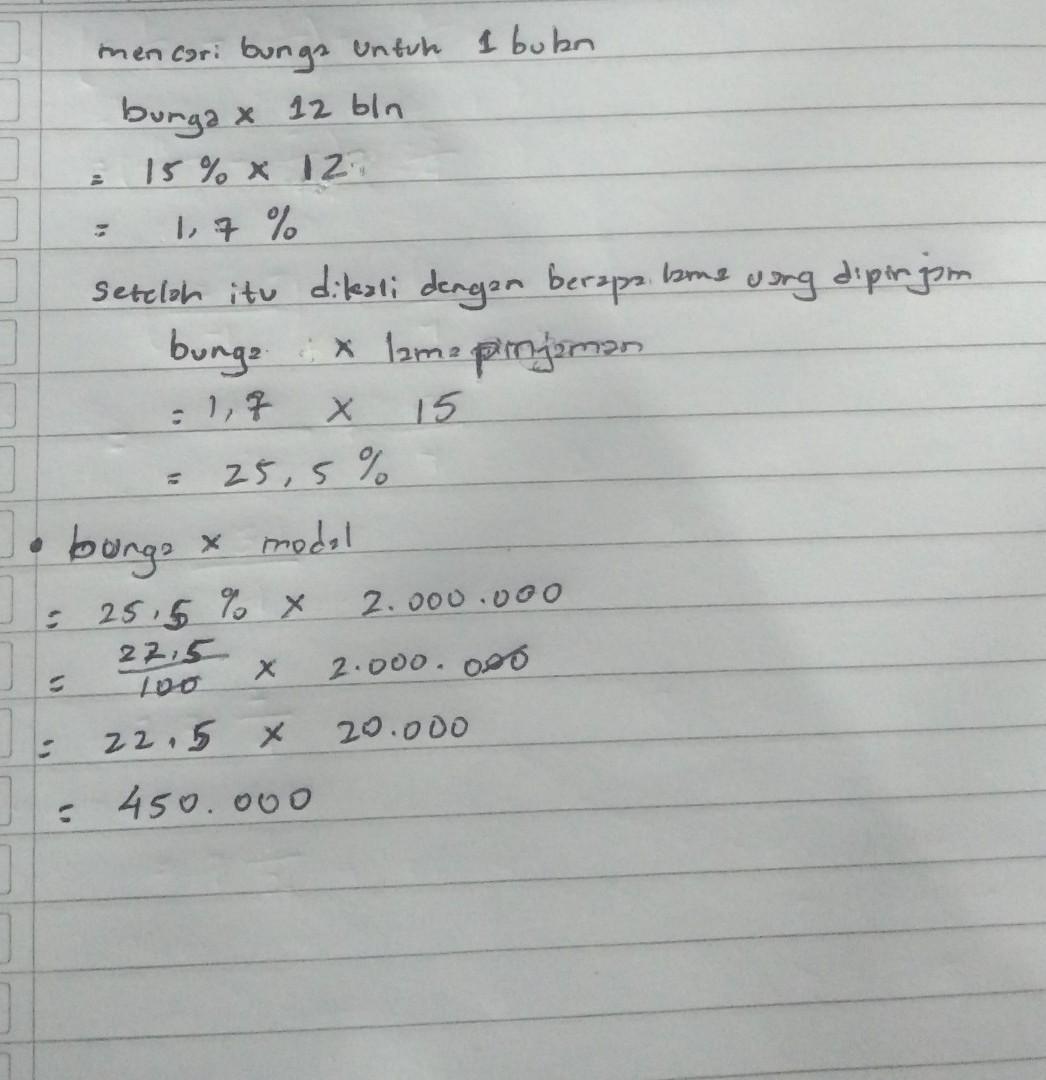 mencari bunga untuk 1 bulan
bunga x 12 bln
= 15 % x 12
= 1,7 %
Setelah itu dikali dengan berapa lama uang dipinjam
bunga x lama pinjaman
= 1,7 x 15
= 25,5 %
• bunga x modal
= 25,5 % x 2.000.000
= 22,5/100 x 2.000.000
= 22,5 x 20.000
= 450.000